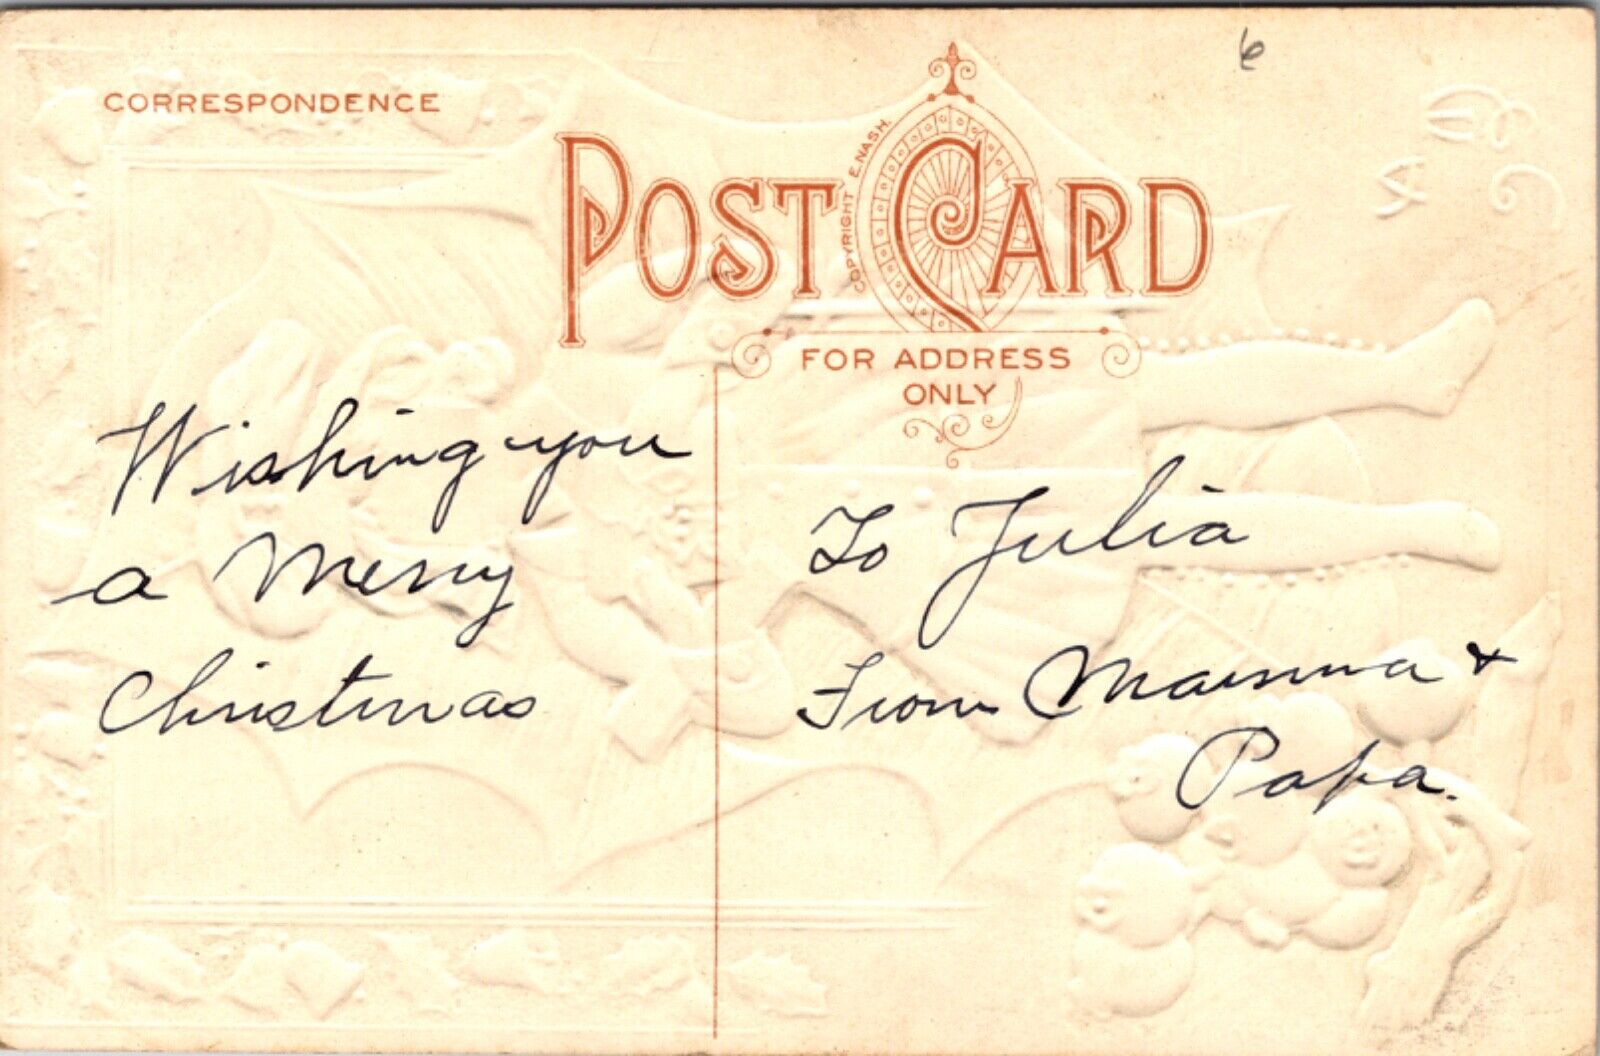 6
CORRESPONDENCE
COPYRIGHT E. NASH.
POST CARD
FOR ADDRESS
ONLY
Wishing you
a Merry
Christmas
To Julia
From Mamma +
Papa.